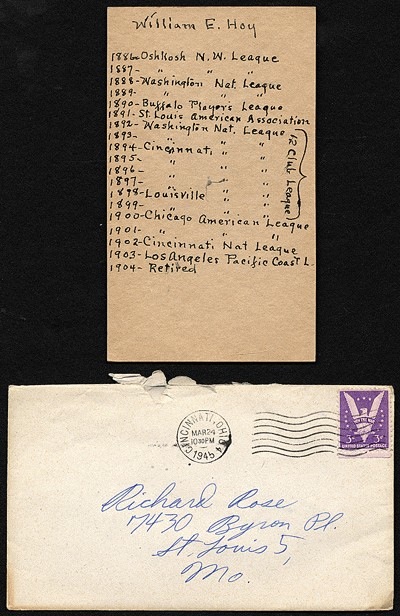 William E. Hoy
1886-Oshkosh N.W. League
1887- " " "
1888-Washington Nat. League
1889- " " "
1890-Buffalo Player's League
1891-St. Louis American Association
1892-Washington Nat. League
1893- " " "
1894-Cincinnati " "
1895- " " "
1896- " " "
1897- " " "
1898-Louisville " "
1899- " " "
12 Club League
1900-Chicago American League
1901- " " "
1902-Cincinnati Nat League
1903-Los Angeles Pacific Coast L.
1904-Retired
CINCINNATI, OHIO
MAR 24
10 30 PM
1945
WIN THE WAR
3¢ 3¢
UNITED STATES POSTAGE
Richard Rose
7430 Byron Pl.
St. Louis 5,
Mo.